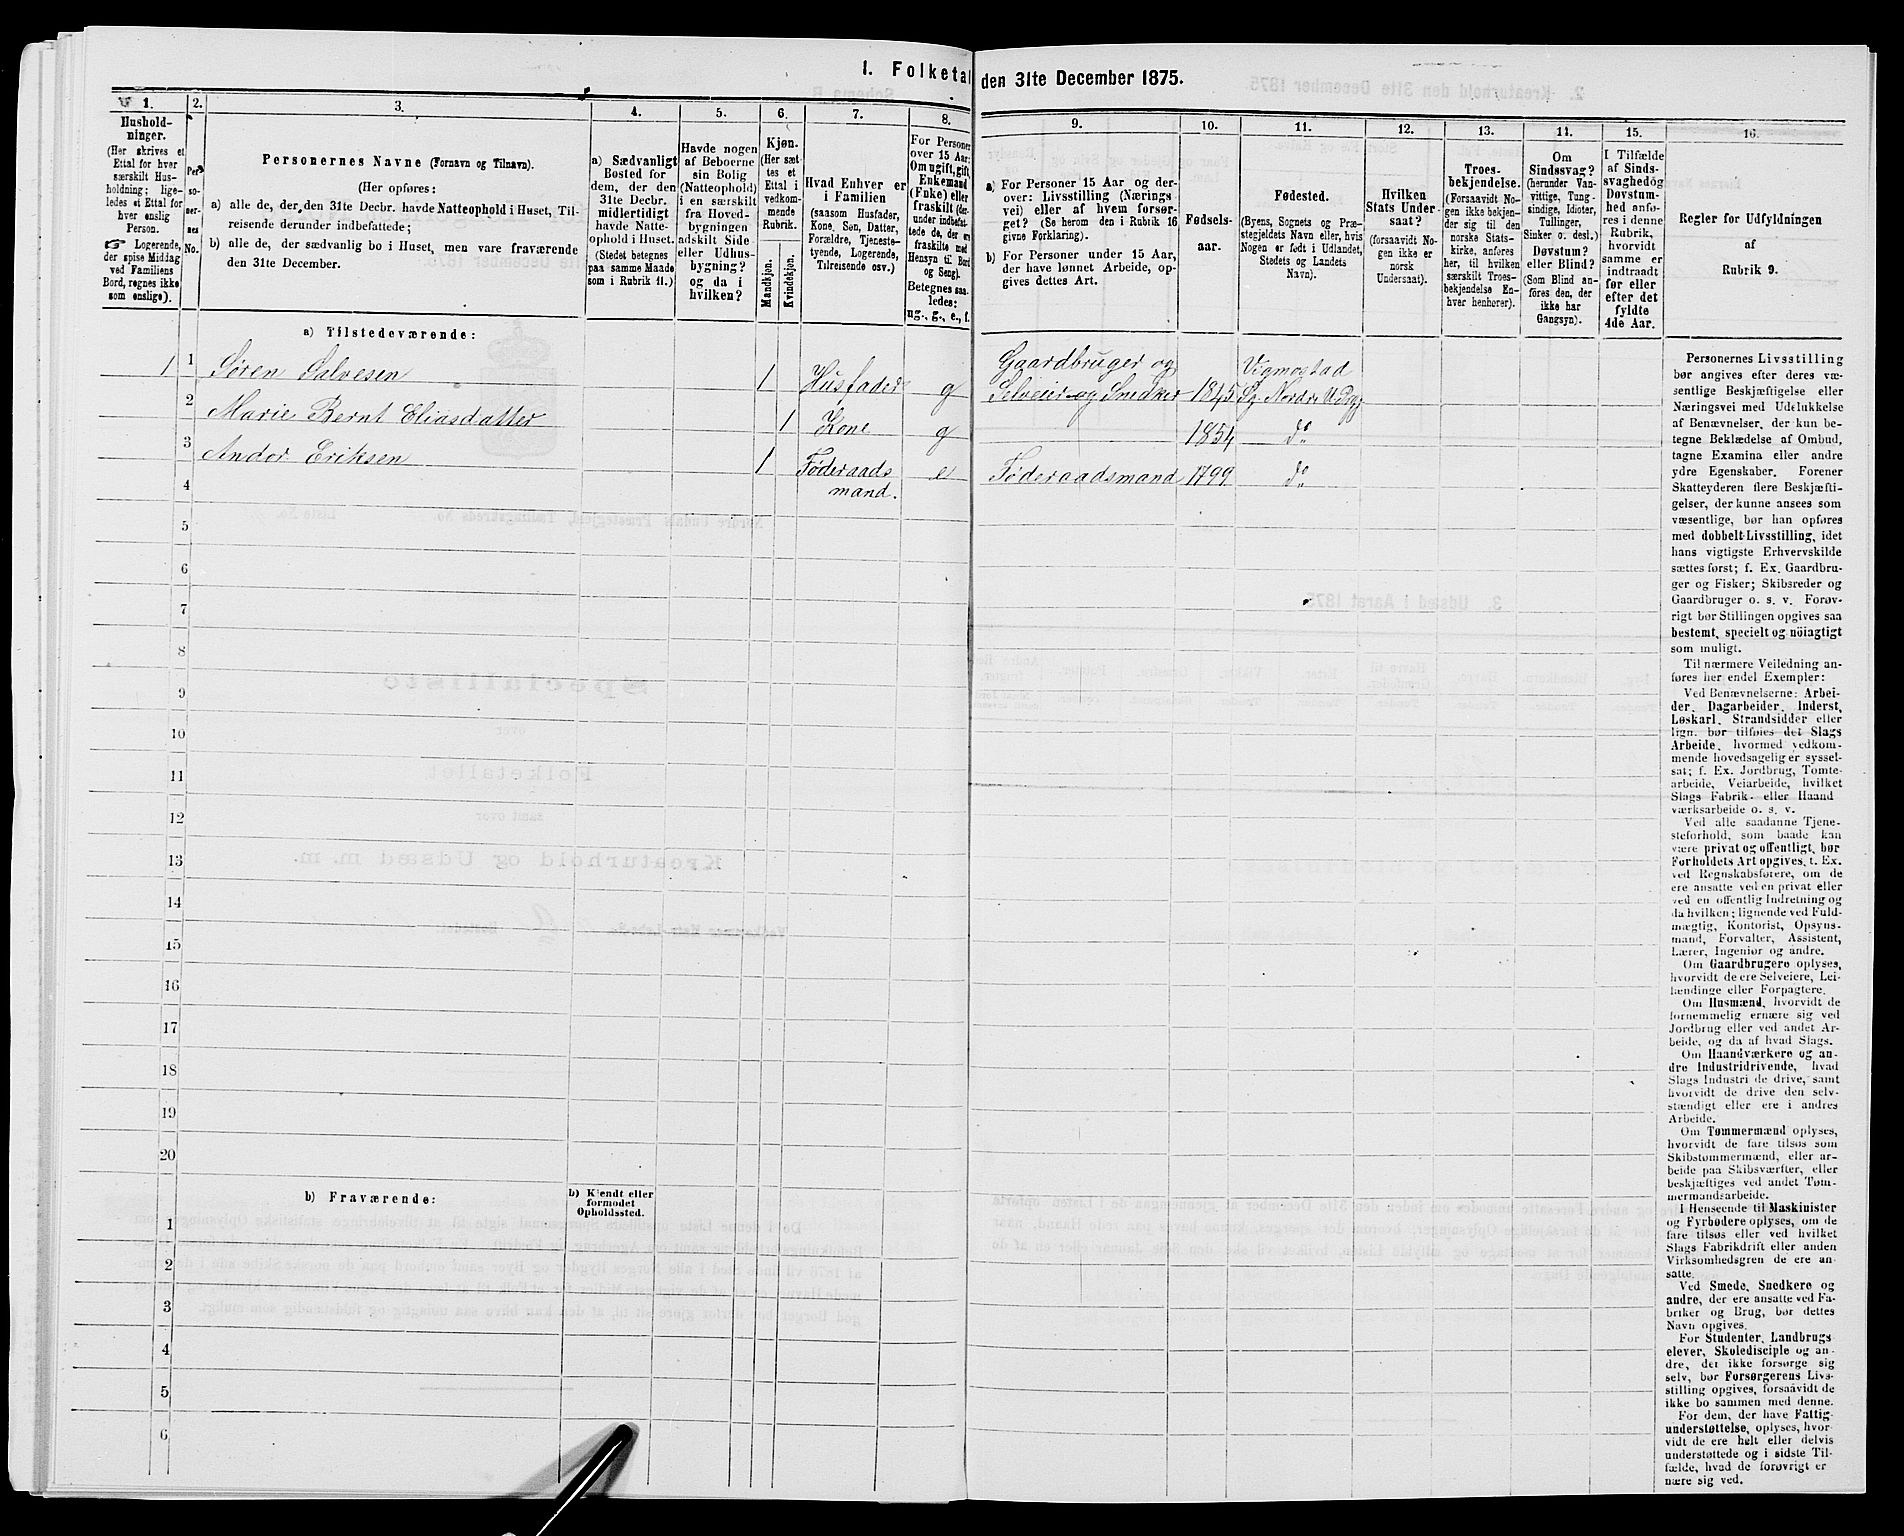 1. Folketal den 31te December 1875.
1.
Hushold-
ninger.
(Her skrives et
Ettal for hver
særskilt Hus-
holdning; lige-
ledes et Ettal for
hver enslig
Person.
☞ Logerende,
der spise Middag
ved Familiens
Bord, regnes ikke
som enslige).
2.
Per-
so-
ner-
nes
No.
3.
Personernes Navne (Fornavn og Tilnavn).
(Her opføres:
a) alle de, der, den 31te Decbr. havde Natteophold i Huset, Til-
reisende derunder indbefattede;
b) alle de, der sædvanlig bo i Huset, men vare fraværende
den 31te December.
4.
a) Sædvanligt
Bosted for
dem, der den
31te Decbr.
midlertidigt
havde Natte-
ophold i Huset.
(Stedet betegnes
paa samme Maade
som i Rubrik 11.)
5.
Havde nogen
af Beboerne
sin Bolig
(Natteophold)
i en særskilt
fra Hoved-
bygningen
adskilt Side-
eller Udhus-
bygning?
og da i
hvilken?
6.
Kjøn.
(Her sæt-
tes et
Ettal i
vedkom-
mende
Rubrik.
Mandkjøn.
Kvindekjøn.
7.
Hvad Enhver er
i Familien
(saasom Husfader,
Kone, Søn, Datter,
Forældre, Tjeneste-
tyende, Logerende,
Tilreisende osv.)
8.
For Personer
over 15 Aar:
Om ugift, gift,
Enkemand
(Enke) eller
fraskilt (der-
under indbefat-
tede de, der ere
fraskilte med
Hensyn til Bord
og Seng).
Betegnes saa-
ledes:
ug., g., e., f.
9.
a) For Personer 15 Aar og der-
over: Livsstilling (Nærings
vei) eller af hvem forsør-
get? (Se herom den i Rubrik 16
givne Forklaring).
b) For Personer under 15 Aar,
der have lønnet Arbeide, op-
gives dettes Art.
10.
Fødsels-
aar.
11.
Fødested.
(Byens, Sognets og Præ-
stegjeldets Navn eller, hvis
Nogen er født i Udlandet,
Stedets og Landets
Navn).
12.
Hvilken
Stats Under-
saat?
(forsaavidt No-
gen ikke er
norsk
Undersaat).
13.
Troes-
bekjendelse.
(Forsaavidt No-
gen ikke bekjen-
der sig til den
norske Stats-
kirke, anføres
her, til hvilken
særskilt Troes-
bekjendelse En-
hver henhører).
14.
Om
Sindssvag?
(herunder Van-
vittige, Tung-
sindige, Idioter,
Tullinger,
Sinker o. desl.)
Døvstum?
eller Blind?
(Som Blind an-
føres den, der
ikke har
Gangsyn).
15.
I Tilfælde
af Sinds-
svaghed og
Døvstum-
hed anfø-
res i denne
Rubrik,
hvorvidt
samme er
indtraadt
før eller
efter det
fyldte
4de Aar.
16.
Regler for Udfyldningen
af
Rubrik 9.
a) Tilstedeværende:
1 1 Søren Salvesen 1 Husfader g Gaardbruger og Selveier og Snedker 1845 Vigmostad Sg. Nordre Ud. Pgj.
2 Marie Bernt Eliasdatter 1 Kone g 1854 do
3 Andor Eriksen 1 Føderaads mand. e Føderaadsmand 1799 do
4
5
6
7
8
9
10
11
12
13
14
15
16
17
18
19
20
b) Fraværende:
b) Kjendt eller
formodet
Opholdssted.
1
2
3
4
5
6
Personernes Livsstilling
bør angives efter deres væ-
sentlige Beskjæftigelse eller
Næringsvei med Udelukkelse
af Benævnelser, der kun be-
tegne Beklædelse af Ombud,
tagne Examina eller andre
ydre Egenskaber. Forener
Skatteyderen flere Beskjæfti-
gelser, der kunne ansees som
væsentlige, bør han opføres
med dobbelt Livsstilling, idet
hans vigtigste Erhvervskilde
sættes først; f. Ex. Gaardbru-
ger og Fisker; Skibsreder og
Gaardbruger o. s. v. Forøv-
rigt bør Stillingen opgives saa
bestemt, specielt og nöiagtigt
som muligt.
Til nærmere Veiledning an-
føres her endel Exempler:
Ved Benævnelserne: Arbei-
der, Dagarbeider, Inderst,
Løskarl, Strandsidder eller
lign. bør tilføies det Slags
Arbeide, hvormed vedkom-
mende hovedsagelig er syssel-
sat; f. Ex. Jordbrug, Tomte-
arbeide, Veiarbeide, hvilket
Slags Fabrik- eller Haand
værksarbeide o. s. v.
Ved alle saadanne Tjene-
steforhold, som baade kan
være privat og offentligt, bør
Forholdets Art opgives, t. Ex.
ved Regnskabsførere, om de
ere ansatte ved en privat eller
ved en offentlig Indretning og
da hvilken; lignende ved Fuld-
mægtig, Kontorist, Opsyns-
mand, Forvalter, Assistent,
Lærer, Ingeniør og andre.
Om Gaardbrugere oplyses,
hvorvidt de ere Selveiere, Lei-
lændinge eller Forpagtere.
Om Husmænd, hvorvidt de
fornemmelig ernære sig ved
Jordbrug eller ved andet Ar-
beide, og da af hvad Slags.
Om Haandværkere og an-
dre Industridrivende, hvad
Slags Industri de drive, samt
hvorvidt de drive den selv-
stændigt eller ere i andres
Arbeide.
Om Tømmermænd oplyses,
hvorvidt de fare tilsøs som
Skibstømmermænd, eller ar-
beide paa Skibsværfter, eller
beskjæftiges ved andet Tøm-
mermandsarbeide.
I Henseende til Maskinister
og Fyrbødere oplyses, om de
fare tilsøs eller ved hvilket
Slags Fabrikdrift eller anden
Virksomhedsgren de ere an-
satte.
Ved Smede, Snedkere og
andre, der ere ansatte ved Fa-
briker og Brug, bør dettes
Navn opgives.
For Studenter, Landbrugs
elever, Skoledisciple og an-
dre, der ikke forsørge sig
selv, bør Forsørgerens Livs-
stilling opgives, forsaavidt de
ikke bo sammen med denne.
For dem, der have Fattig-
understøttelse, oplyses, hvor-
vidt de ere helt eller delvis
understøttede og i sidste Til-
fælde, hvad de forøvrigt er
nære sig ved.